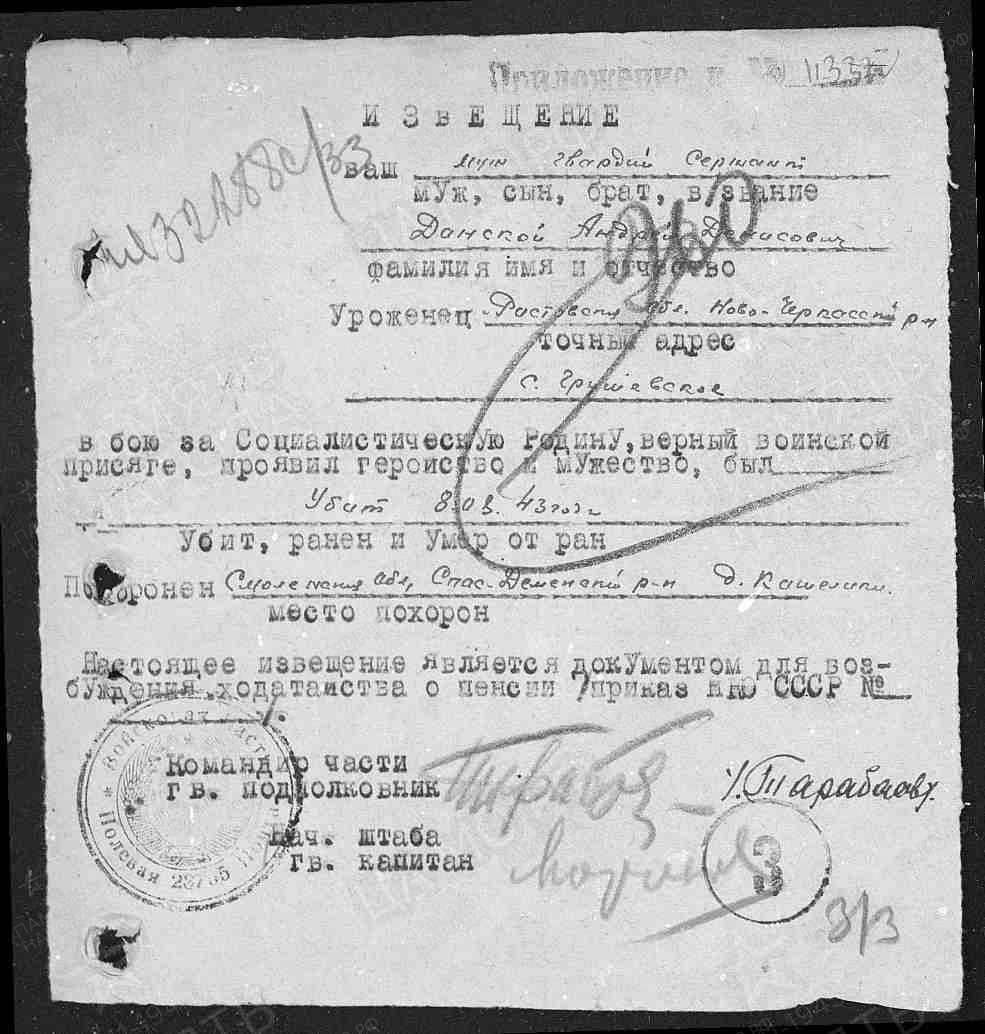 Приложение к № 11332
ИЗВЕЩЕНИЕ
32188с/33
ваш муж гвардии Сержант
муж, сын, брат, в/звание
Данской Андрей Денисович
фамилия имя и отчество
Уроженец Ростовская обл. Ново-Черкасский р-н
точный адрес
с. Грушевское
в бою за Социалистическую Родину, верный воинской
присяге, проявил героиство и мужество, был
Убит 8.03.43 года
Убит, ранен и умер от ран
Похоронен Смоленская обл, Спас-Деменский р-н д.
место похорон
Настоящее извещение является документом для воз-
буждения ходатаиства о пенсии /приказ НКО СССР №
/.
Командир части
гв. подполковник
Нач. штаба
гв. капитан
Войсковая часть
Полевая 23765
3
3/3